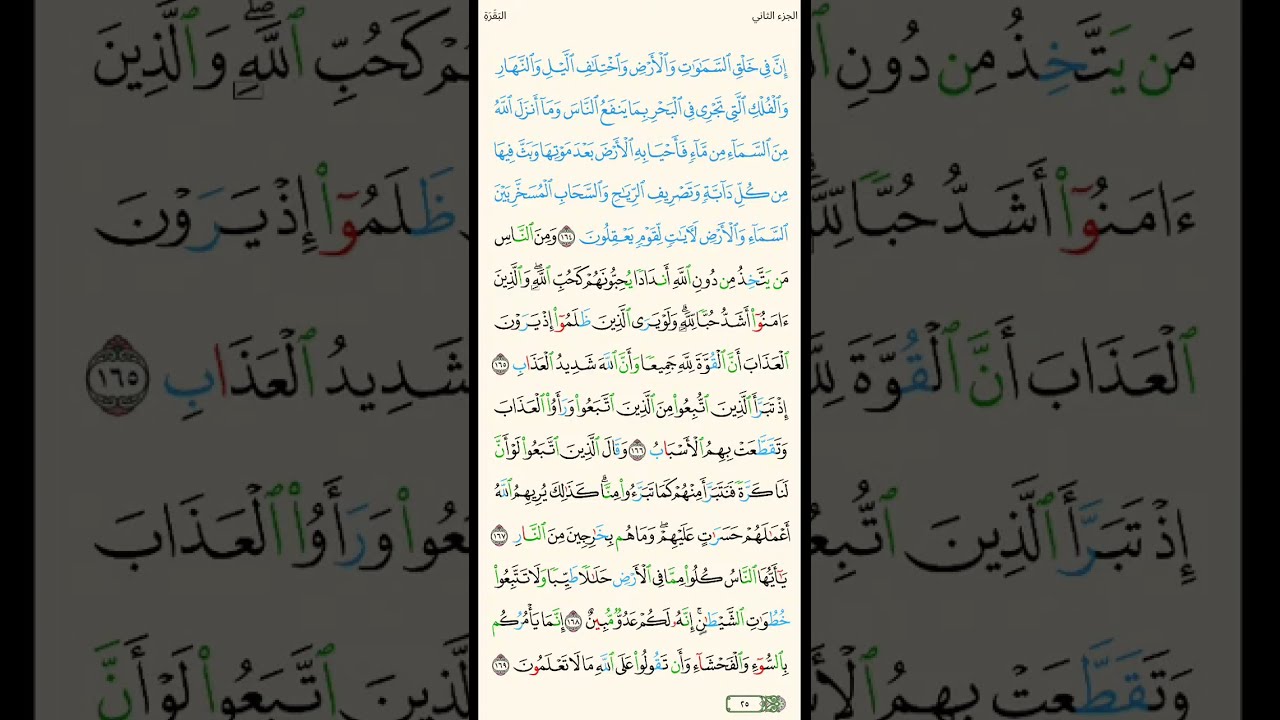 الجزء الثاني
البَقَرَةِ
إِنَّ فِي خَلْقِ ٱلسَّمَٰوَٰتِ وَٱلْأَرْضِ وَٱخْتِلَٰفِ ٱلَّيْلِ وَٱلنَّهَارِ
وَٱلْفُلْكِ ٱلَّتِي تَجْرِي فِي ٱلْبَحْرِ بِمَا يَنفَعُ ٱلنَّاسَ وَمَآ أَنزَلَ ٱللَّهُ
مِنَ ٱلسَّمَآءِ مِن مَّآءٍ فَأَحْيَا بِهِ ٱلْأَرْضَ بَعْدَ مَوْتِهَا وَبَثَّ فِيهَا
مِن كُلِّ دَآبَّةٍ وَتَصْرِيفِ ٱلرِّيَٰحِ وَٱلسَّحَابِ ٱلْمُسَخَّرِ بَيْنَ
ٱلسَّمَآءِ وَٱلْأَرْضِ لَءَايَٰتٍ لِّقَوْمٍ يَعْقِلُونَ ١٦٤ وَمِنَ ٱلنَّاسِ
مَن يَتَّخِذُ مِن دُونِ ٱللَّهِ أَندَادًا يُحِبُّونَهُمْ كَحُبِّ ٱللَّهِۖ وَٱلَّذِينَ
ءَامَنُوٓا۟ أَشَدُّ حُبًّا لِّلَّهِۗ وَلَوْ يَرَى ٱلَّذِينَ ظَلَمُوٓا۟ إِذْ يَرَوْنَ
ٱلْعَذَابَ أَنَّ ٱلْقُوَّةَ لِلَّهِ جَمِيعًا وَأَنَّ ٱللَّهَ شَدِيدُ ٱلْعَذَابِ ١٦٥
إِذْ تَبَرَّأَ ٱلَّذِينَ ٱتُّبِعُوا۟ مِنَ ٱلَّذِينَ ٱتَّبَعُوا۟ وَرَأَوُا۟ ٱلْعَذَابَ
وَتَقَطَّعَتْ بِهِمُ ٱلْأَسْبَابُ ١٦٦ وَقَالَ ٱلَّذِينَ ٱتَّبَعُوا۟ لَوْ أَنَّ
لَنَا كَرَّةً فَنَتَبَرَّأَ مِنْهُمْ كَمَا تَبَرَّءُوا۟ مِنَّاۗ كَذَٰلِكَ يُرِيهِمُ ٱللَّهُ
أَعْمَٰلَهُمْ حَسَرَٰتٍ عَلَيْهِمْۖ وَمَا هُم بِخَٰرِجِينَ مِنَ ٱلنَّارِ ١٦٧
يَٰٓأَيُّهَا ٱلنَّاسُ كُلُوا۟ مِمَّا فِي ٱلْأَرْضِ حَلَٰلًا طَيِّبًا وَلَا تَتَّبِعُوا۟
خُطُوَٰتِ ٱلشَّيْطَٰنِۚ إِنَّهُۥ لَكُمْ عَدُوٌّ مُّبِينٌ ١٦٨ إِنَّمَا يَأْمُرُكُم
بِٱلسُّوٓءِ وَٱلْفَحْشَآءِ وَأَن تَقُولُوا۟ عَلَى ٱللَّهِ مَا لَا تَعْلَمُونَ ١٦٩
٢٥